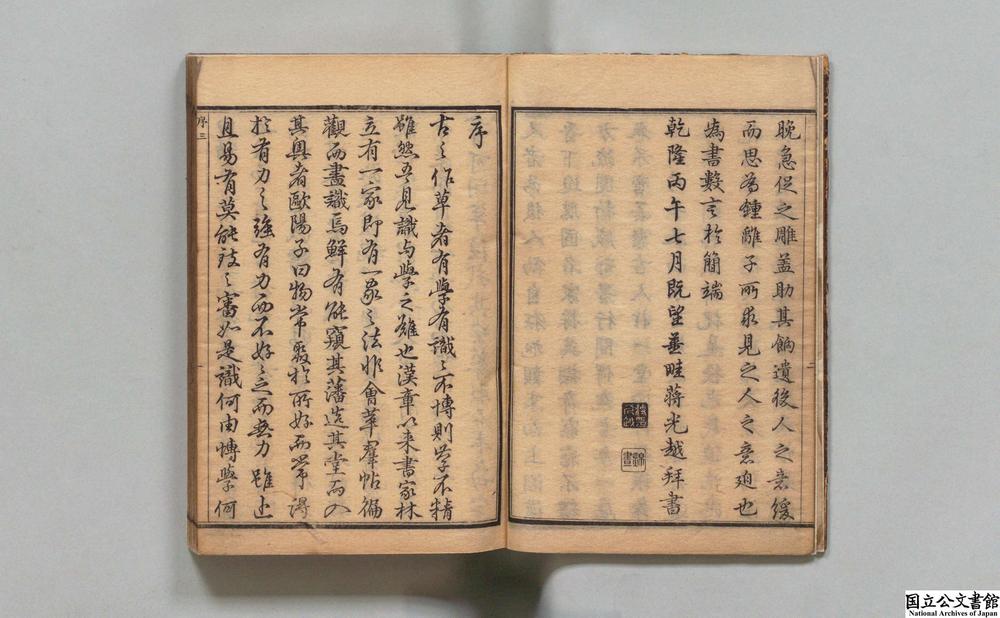 晚急促之雕蓋助其餉遺後人之意緩
而思為鍾離子所求見之人之意迫也
為書數言於簡端
乾隆丙午七月既望
蔣光越拜書
二
序
古之作草者有學有識識不博則學不精
雖然吾見識与學之難也漢章以來書家林
立有一家即有一家之法非會萃羣帖徧
觀而盡識焉鮮有能窺其藩造其堂而入
其奧者歐陽子曰物常聚於所好而常得
於有力之強有力而不好之而無力雖近
且易有莫能致之審如是識何由博學何
序三
国立公文書館
National Archives of Japan